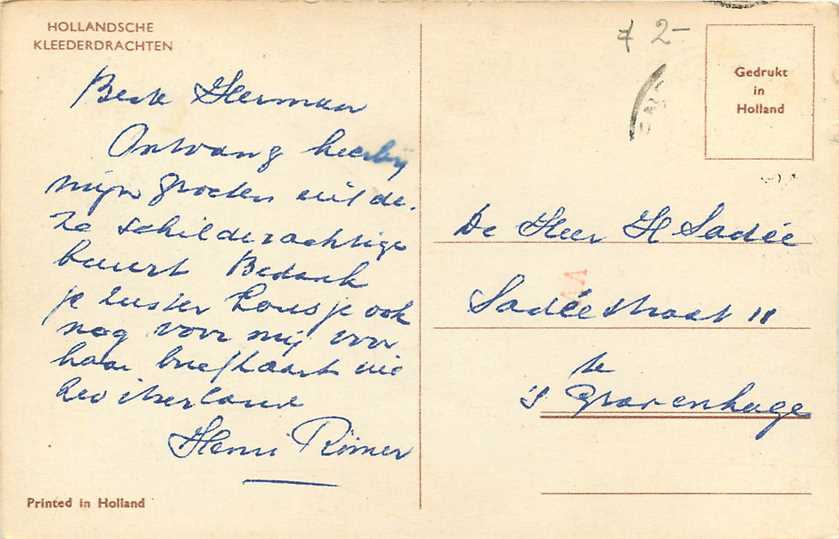 HOLLANDSCHE
KLEEDERDRACHTEN
Beste Herman
Ontvang hierbij
mijn groeten uit de.
ze schilderachtige
buurt Bedank
je zuster Lousje ook
nog voor mij voor
haar briefkaart uit
Zwitserland
Henri Römer
Printed in Holland
2-
Gedrukt
in
Holland
De Heer H Sadée
Sadéestraat 11
te
's Gravenhage